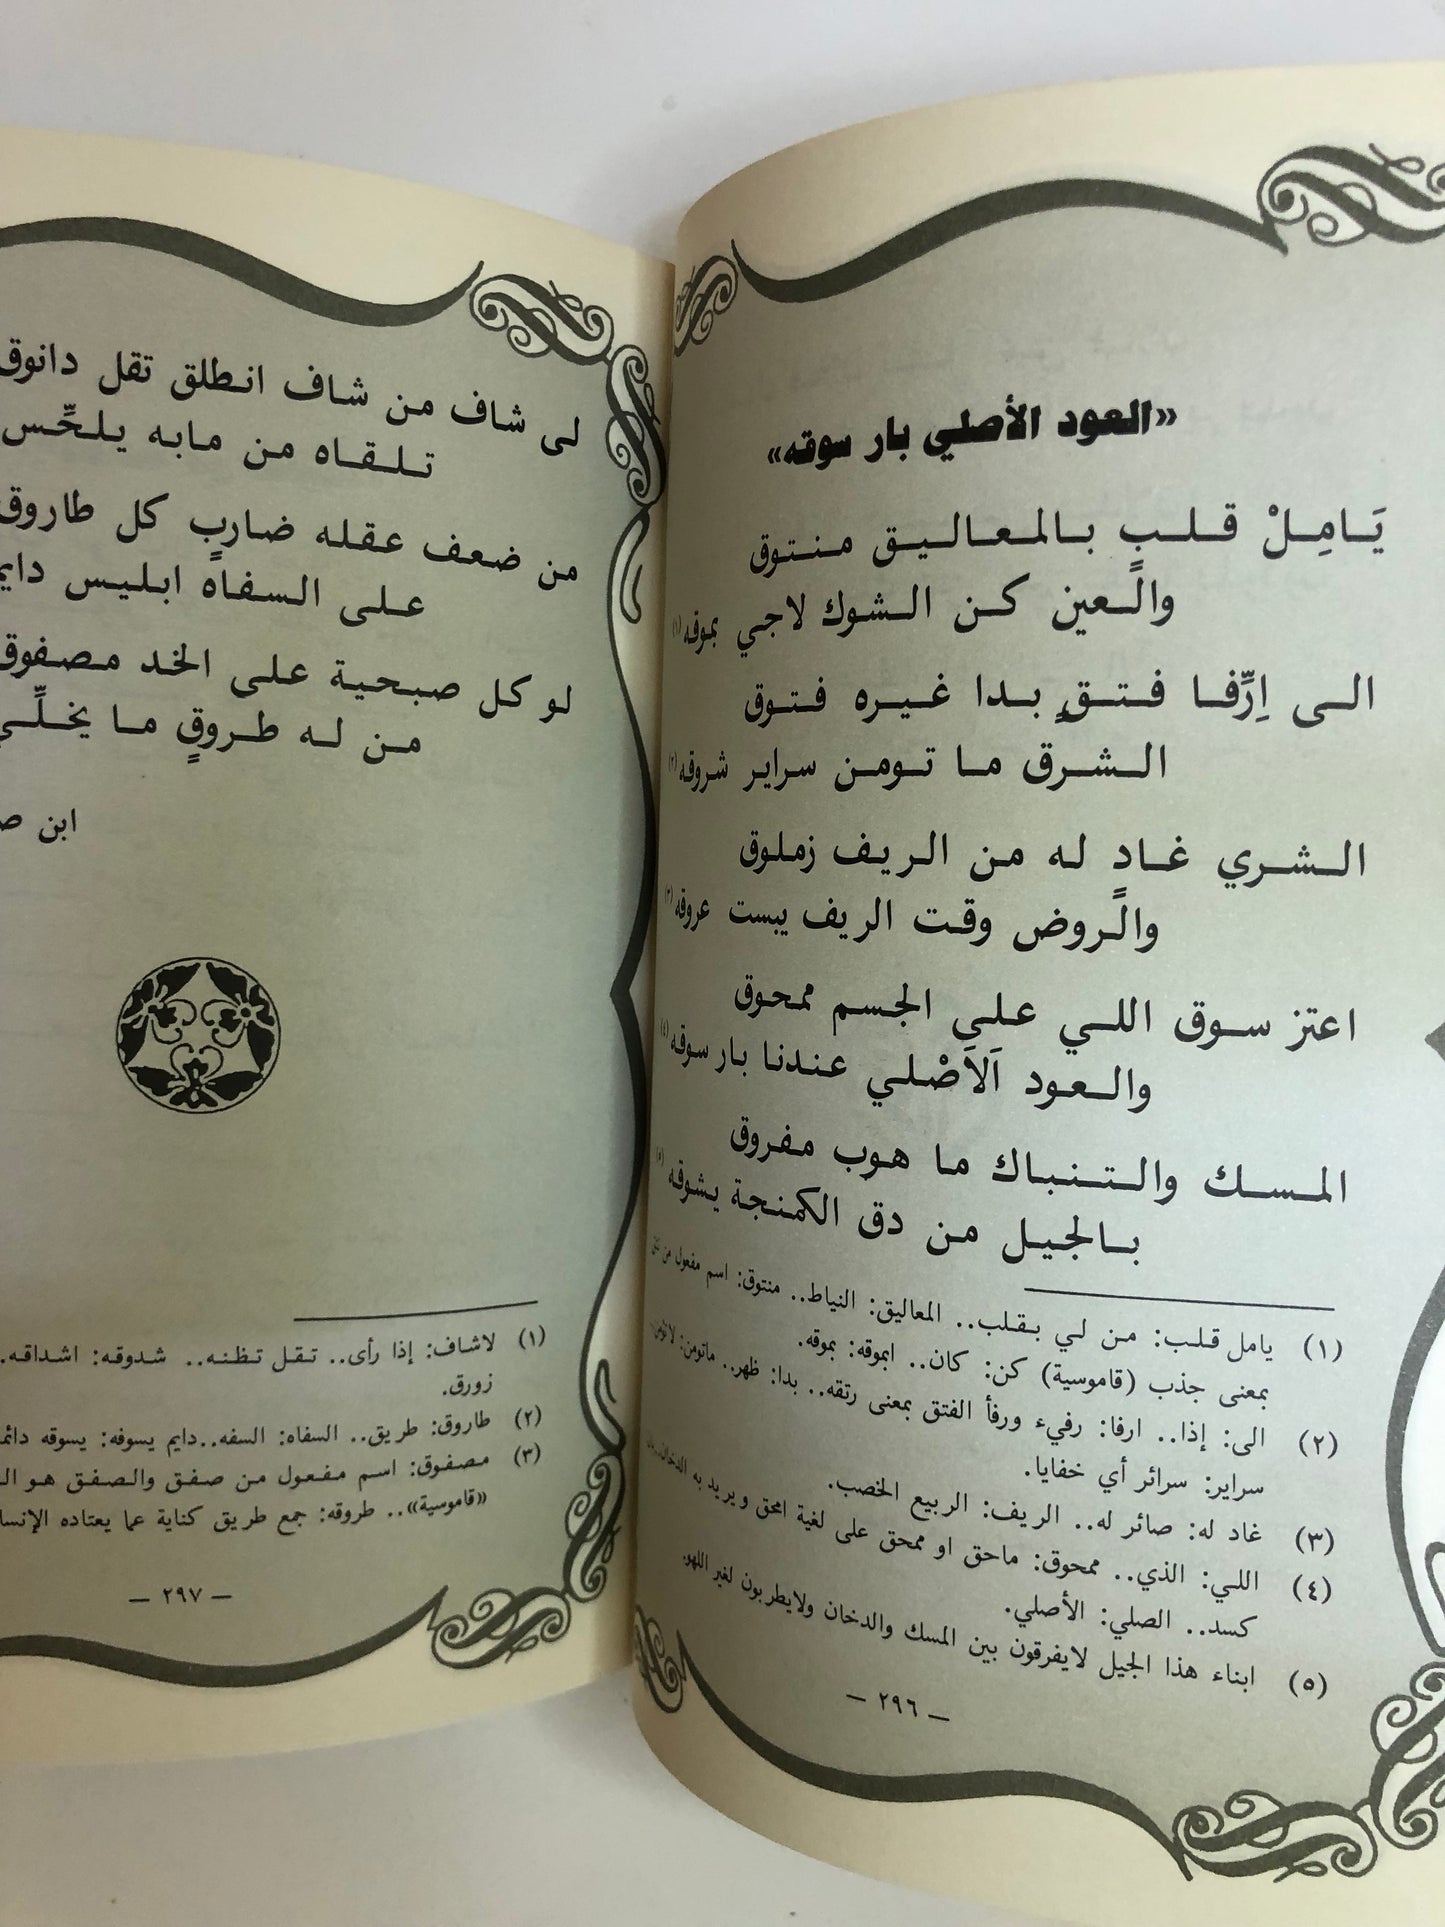 «العود الأصلي بار سوقه»
يَـامِـلْ قـلـبٍ بـالمـعـالـيـق مـنـتـوق
والـعين كـن الـشوك لاجـي بموقه (١)
الـى اِرِّفـا فـتـقٍ بـدا غـيـره فـتـوق
الـشـرق مـا تـومـن سـراير شروقه (٢)
الـشـري غـادٍ لـه مـن الـريـف زملوق
والـروض وقـت الريف يبست عروقه (٣)
اعتز سـوق اللـي عـلـى الجـسـم ممحوق
والـعـود اَلاَصْلـي عـنـدنـا بـار سوقه (٤)
المـسـك والـتـنـبـاك مـا هـوب مـفـروق
بـالجـيـل مـن دق الكمنجة يشوقه (٥)
(١) يامل قـلـب: مـن لـي بـقـلب.. المعاليق: النياط.. منتوق: اسم مفعول من نتق
بمعنى جذب (قاموسية) كن: كان.. ابموقه: بموقه.
(٢) الى: إذا.. ارفا: رفيء ورفأ الفتق بمعنى رتقه.. بدا: ظهر.. ماتومن: لاتؤمن..
سراير: سرائر أي خفايا.
(٣) غاد له: صائر له.. الريف: الربيع الخصب.
(٤) اللـي: الذي.. ممحوق: ماحق او ممحق على لغية امحق ويريد به الدخان..
كسد.. الصلي: الأصلي.
(٥) ابناء هذا الجيل لايفرقون بين المسك والدخان ولايطربون لغير اللهو.
— ٢٩٦ —
لـى شاف مـن شـاف انـطلق تقل دانوق
تـلـقـاه مـن مـابـه يـلـحِّـس
مـن ضـعـف عـقـلـه ضـاربٍ كل طاروق
عـلـى الـسـفـاه ابـلـيـس دايم
لـو كـل صـبـحـيـة عـلـى الخـد مـصـفوق
مـن لـه طـروقٍ مـا يخـلِّـي
ابن
(١) لاشاف: إذا رأى.. تـقـل تـظـنـه.. شدوقه: اشداقه.
زورق.
(٢) طاروق: طريق.. السفاه: السفه..دايم يسوفه: يسوقه دائما
(٣) مصـفوق: اسم مـفـعول من صـفـق والـصـفـق هـو
«قاموسية».. طروقه: جمع طريق كناية عما يعتاده
— ٢٩٧ —